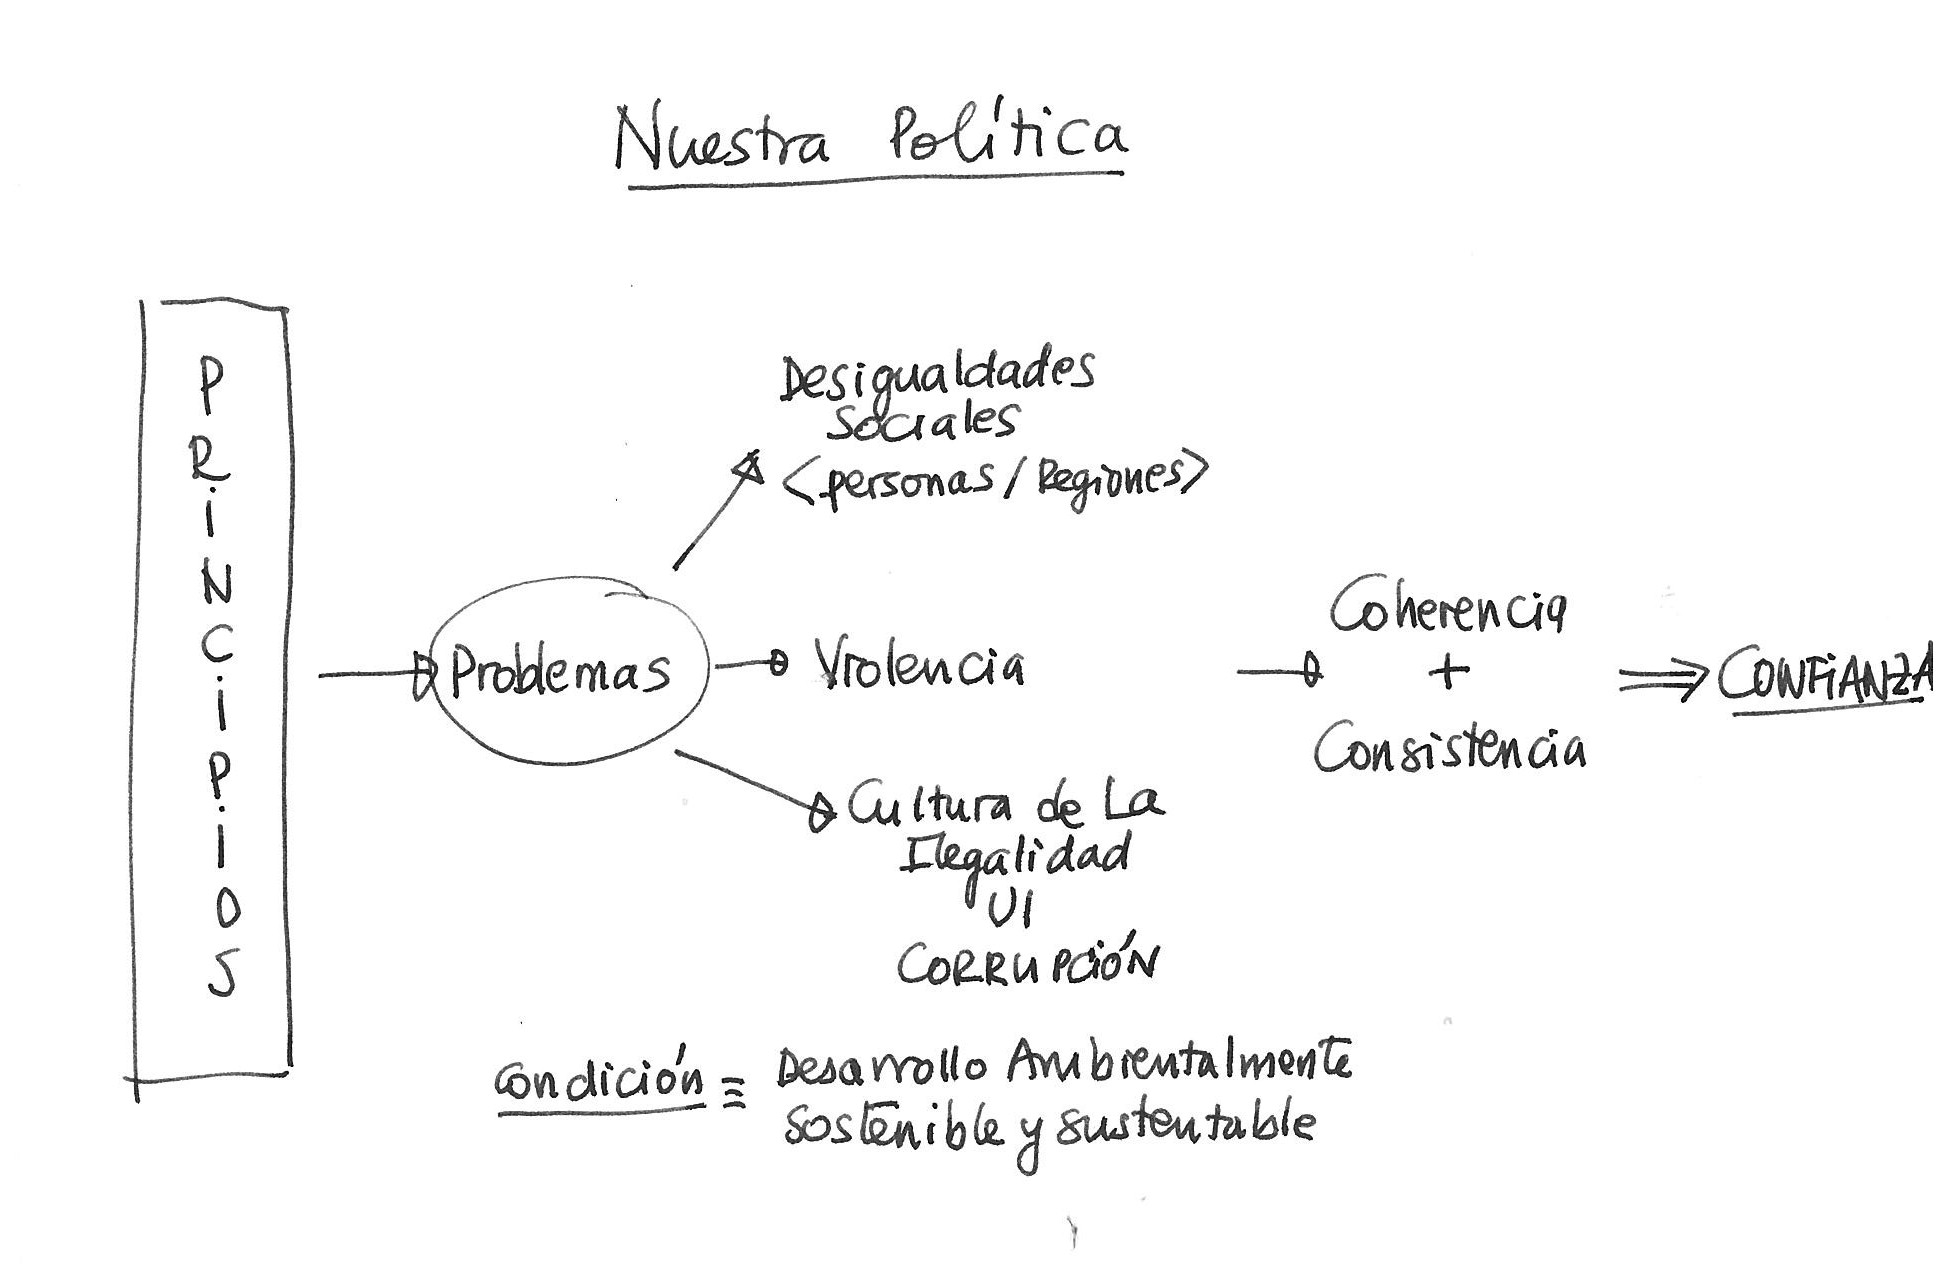 Nuestra Política
PRINCIPIOS
Problemas
Desigualdades
Sociales
<personas/Regiones>
Violencia
Cultura de La
Ilegalidad
UI
CORRUPCIÓN
Coherencia
+
Consistencia
CONFIANZA
Condición ≡ Desarrollo Ambientalmente
Sostenible y sustentable